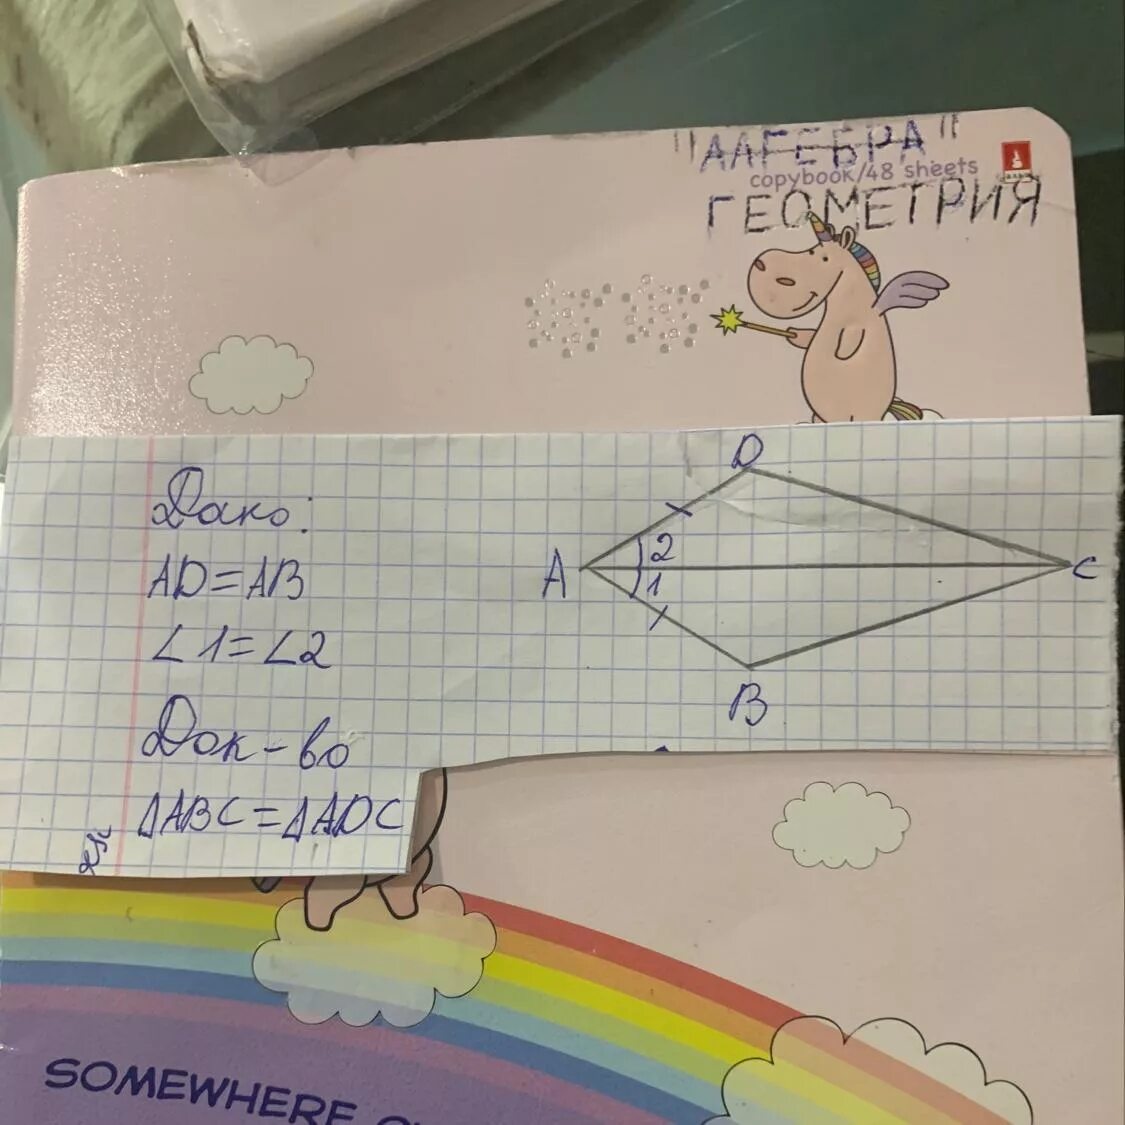 "АЛГЕБРА"
copybook/48 sheets
ГЕОМЕТРИЯ
Дано:
AD=AB
∠1=∠2
Док-во
ΔABC=ΔADC
D
A
2
1
C
B
SOMEWHERE